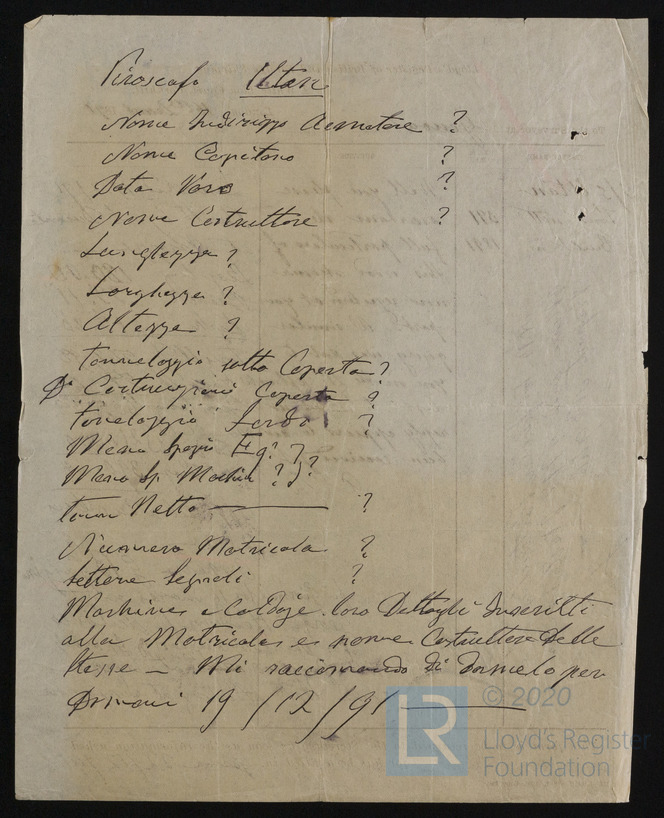 Piroscafo Utan
Nome Indirizzo Armatore ?
Nome Capitano ?
Data Varo ?
Nome Costruttore ?
Lunghezza ?
Larghezza ?
Altezza ?
Tonnelaggio sotto Coperta ?
Di Costruzioni Coperta ?
Tonelaggio Lordo ?
Meno Spazio Eq. ? }
Meno Sp. Machin ? } ?
Tonn Netto — ?
Numero Matricola ?
Lettere Segnali ?
Machines e Caldaje. loro Dettagli Inscritti
alla Matricola e nome Costruttore Delle
Stesse — Mi raccomando di darmelo per
Domani 19/12/91 —
© 2020
LR
Lloyd's Register
Foundation